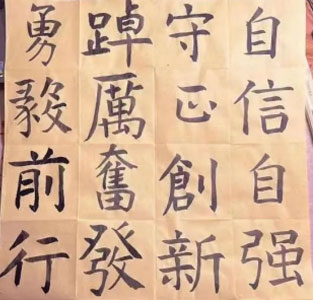 自信自强
守正創新
踔厲奮發
勇毅前行